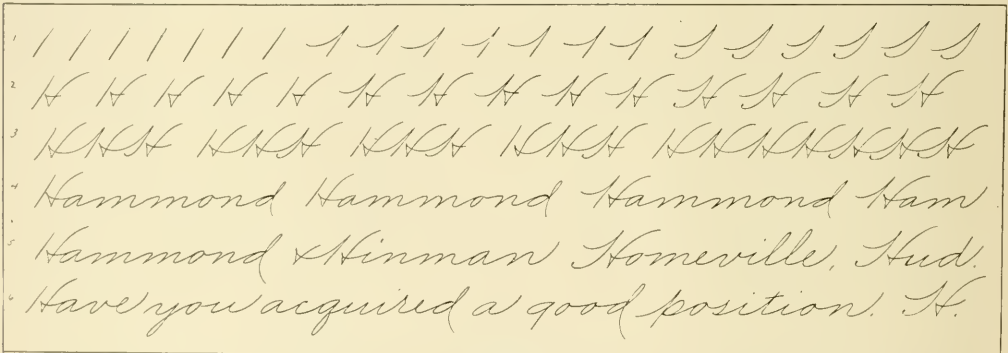 H H H H H H H H H H H H H H
HHH HHH HHH HHH HHHHHHH
Hammond Hammond Hammond Ham
Hammond & Hinman Homeville. Hud.
Have you acquired a good position. H.